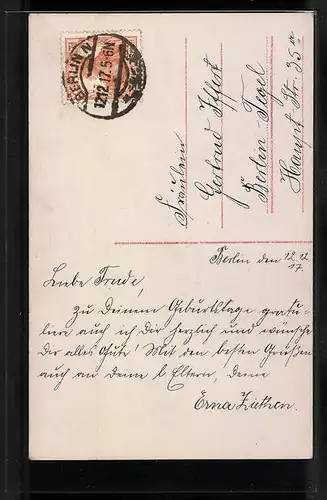 BERLIN N
12.12.17.5-6N
Fräulein
Gertrud Iffert
Berlin-Tegel
Haupt Str. 35a
Berlin den 12.12
17.
Liebe Trude,
zu Deinem Geburtstage gratu-
liere auch ich Dir herzlich und wünsche
Dir alles Gute! Mit den besten Grüßen
auch an deine l. Eltern, deine
Erna Ziethen.